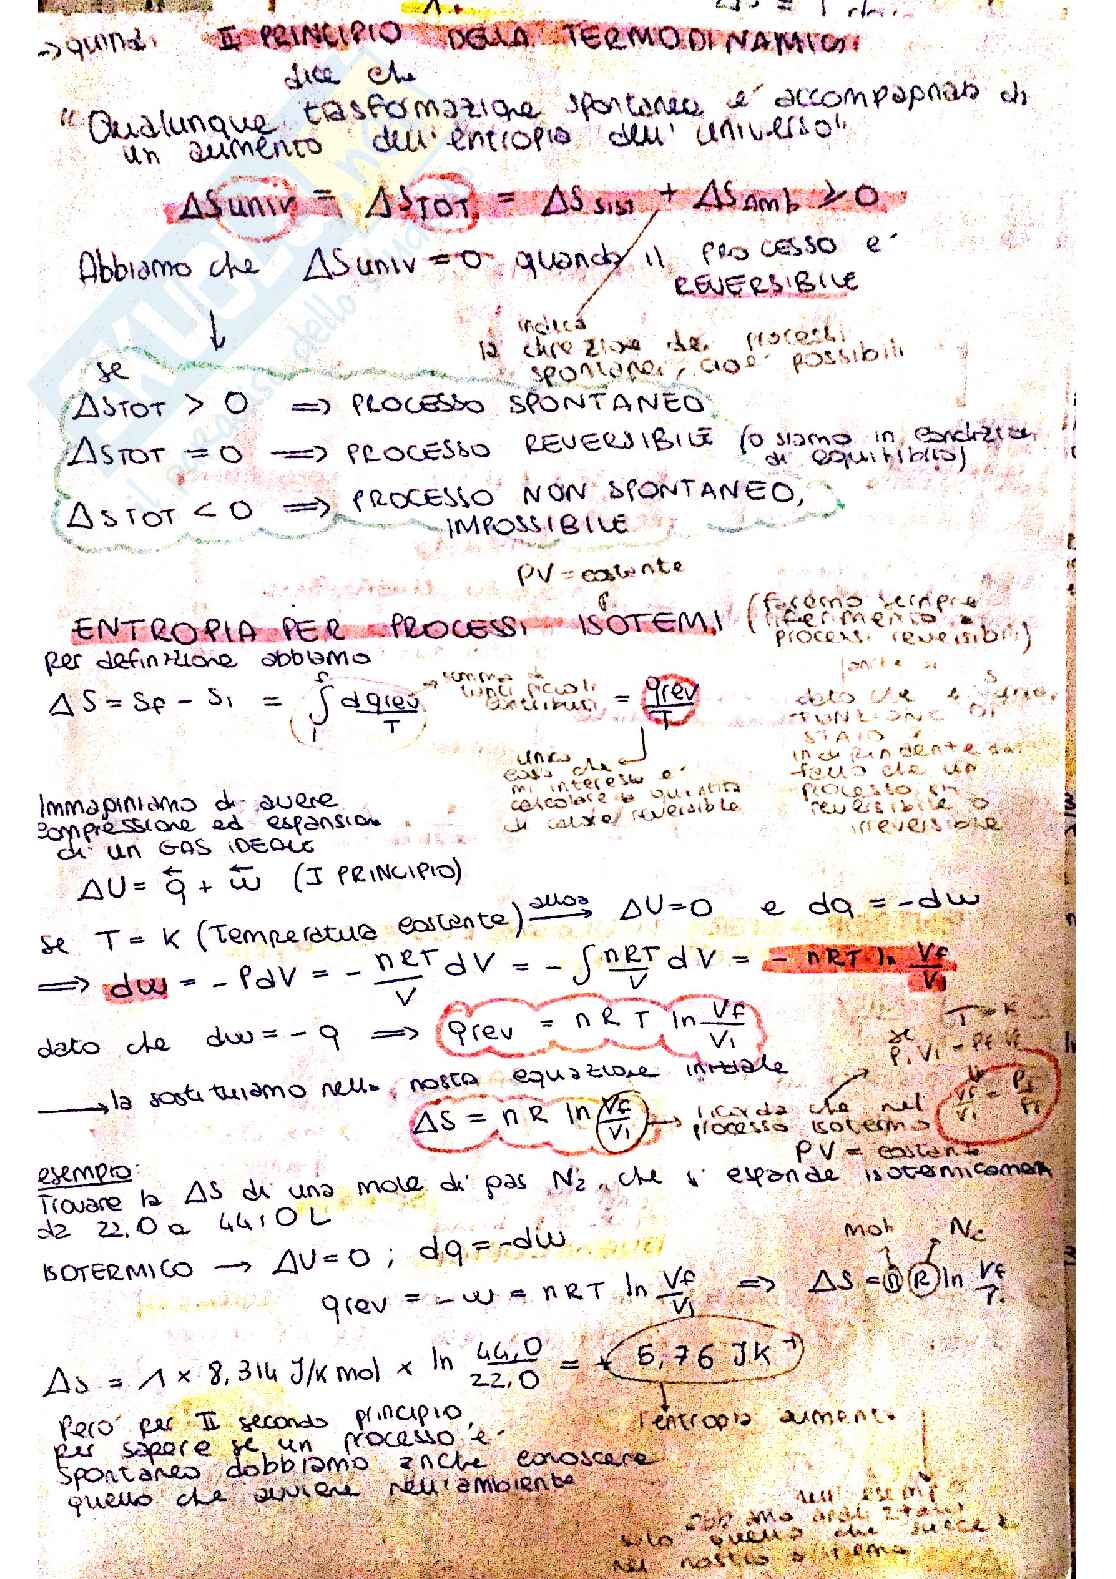 → quindi II PRINCIPIO DELLA TERMODINAMICA:
dice che
"Qualunque trasformazione spontanea e' accompagnata di
un aumento dell'entropia dell'universo"
ΔSuniv = ΔSTOT = ΔSsist + ΔSAmb ≥ 0
Abbiamo che ΔSuniv = 0 quando il PROCESSO E'
REVERSIBILE
indica
la direzione dei processi
spontanei, cioè possibili
se
ΔSTOT > 0 ⇒ PROCESSO SPONTANEO
ΔSTOT = 0 ⇒ PROCESSO REVERSIBILE (o siamo in condizioni
di equilibrio)
ΔSTOT < 0 ⇒ PROCESSO NON SPONTANEO,
IMPOSSIBILE
PV = costante
ENTROPIA PER PROCESSI ISOTEMI (facciamo sempre
riferimento a
processi reversibili)
per definizione abbiamo
ΔS = Sf - Si = ∫ dqrev/T = qrev/T
somma di
tanti piccoli
contributi
unica che
cosa che
mi interessa e'
calcolare la quantità
di calore reversibile
dato che e'
FUNZIONE DI
STATO
indipendente dal
fatto che un
processo sia
reversibile o
irreversibile
Immaginiamo di avere
compressione ed espansion
di un GAS IDEALE
ΔU = q + w (I PRINCIPIO)
se T = K (Temperatura costante) allora → ΔU = 0 e dq = -dw
⇒ dw = - PdV = - nRT/V dV = - ∫ nRT/V dV = - nRT ln Vf/Vi
dato che dw = - q ⇒ qrev = n R T ln Vf/Vi
T = K
se
Pi Vi = Pf Vf
Vf/Vi = Pi/Pf
→ la sostituiamo nella nostra equazione iniziale
ΔS = n R ln Vf/Vi → ricorda che nel
processo isotermo
PV = costante
esempio:
Trovare la ΔS di una mole di gas N2 che si espande isotermicamen
da 22.0 a 44,0 L
ISOTERMICO → ΔU = 0 ; dq = -dw
qrev = - w = nRT ln Vf/Vi ⇒ ΔS = n R ln Vf/
moli
ΔS = 1 x 8,314 J/K mol x ln 44,0/22,0 = + 5,76 JK⁻¹
l'entropia aumenta
Pero' per II secondo principio,
per sapere se un processo e'
spontaneo dobbiamo anche conoscere
quello che avviene nell'ambiente
nell'esempio
abbiamo analizzato
solo quello che succede
nel nostro sistema